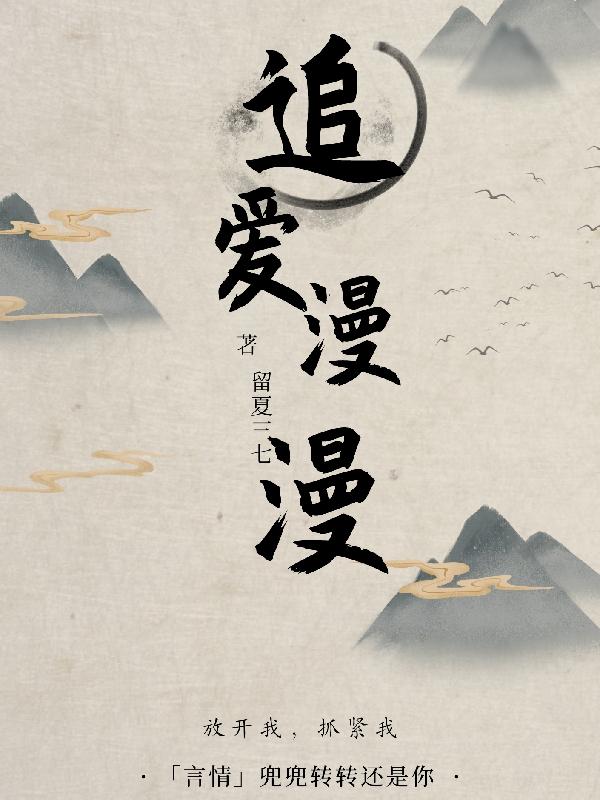 追爱漫漫
著
留夏三七
放开我，抓紧我
·「言情」兜兜转转还是你·